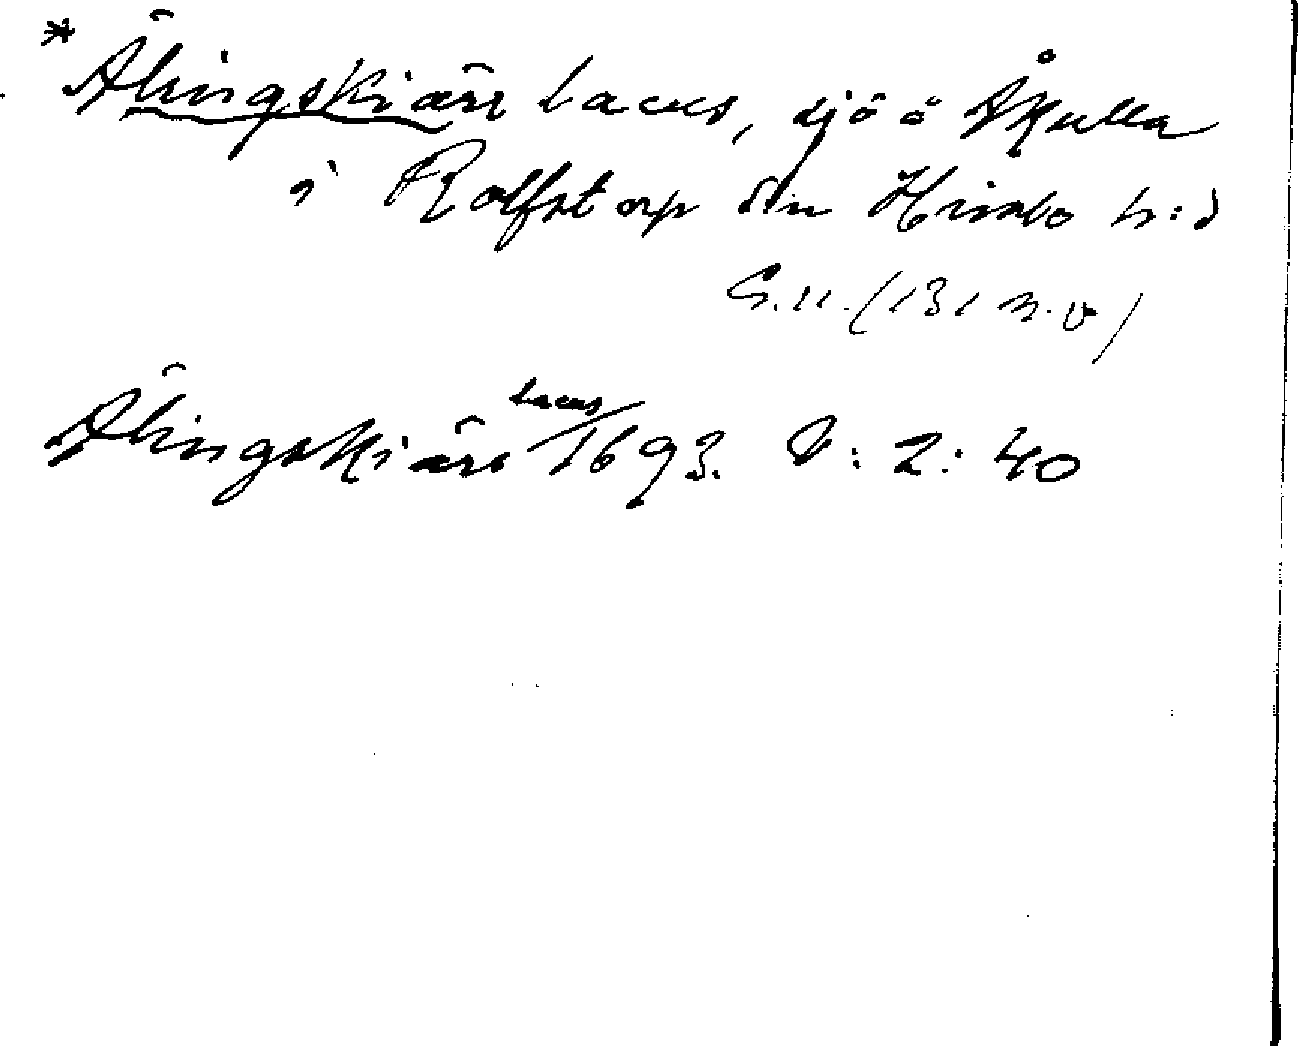 *Älringskiärr lacus, sjö å Åkulla
i Rolfstorp sn Himle h:d
G.u. (131 n.v)
Älringskiärr lacus 1693. V: 2: 40